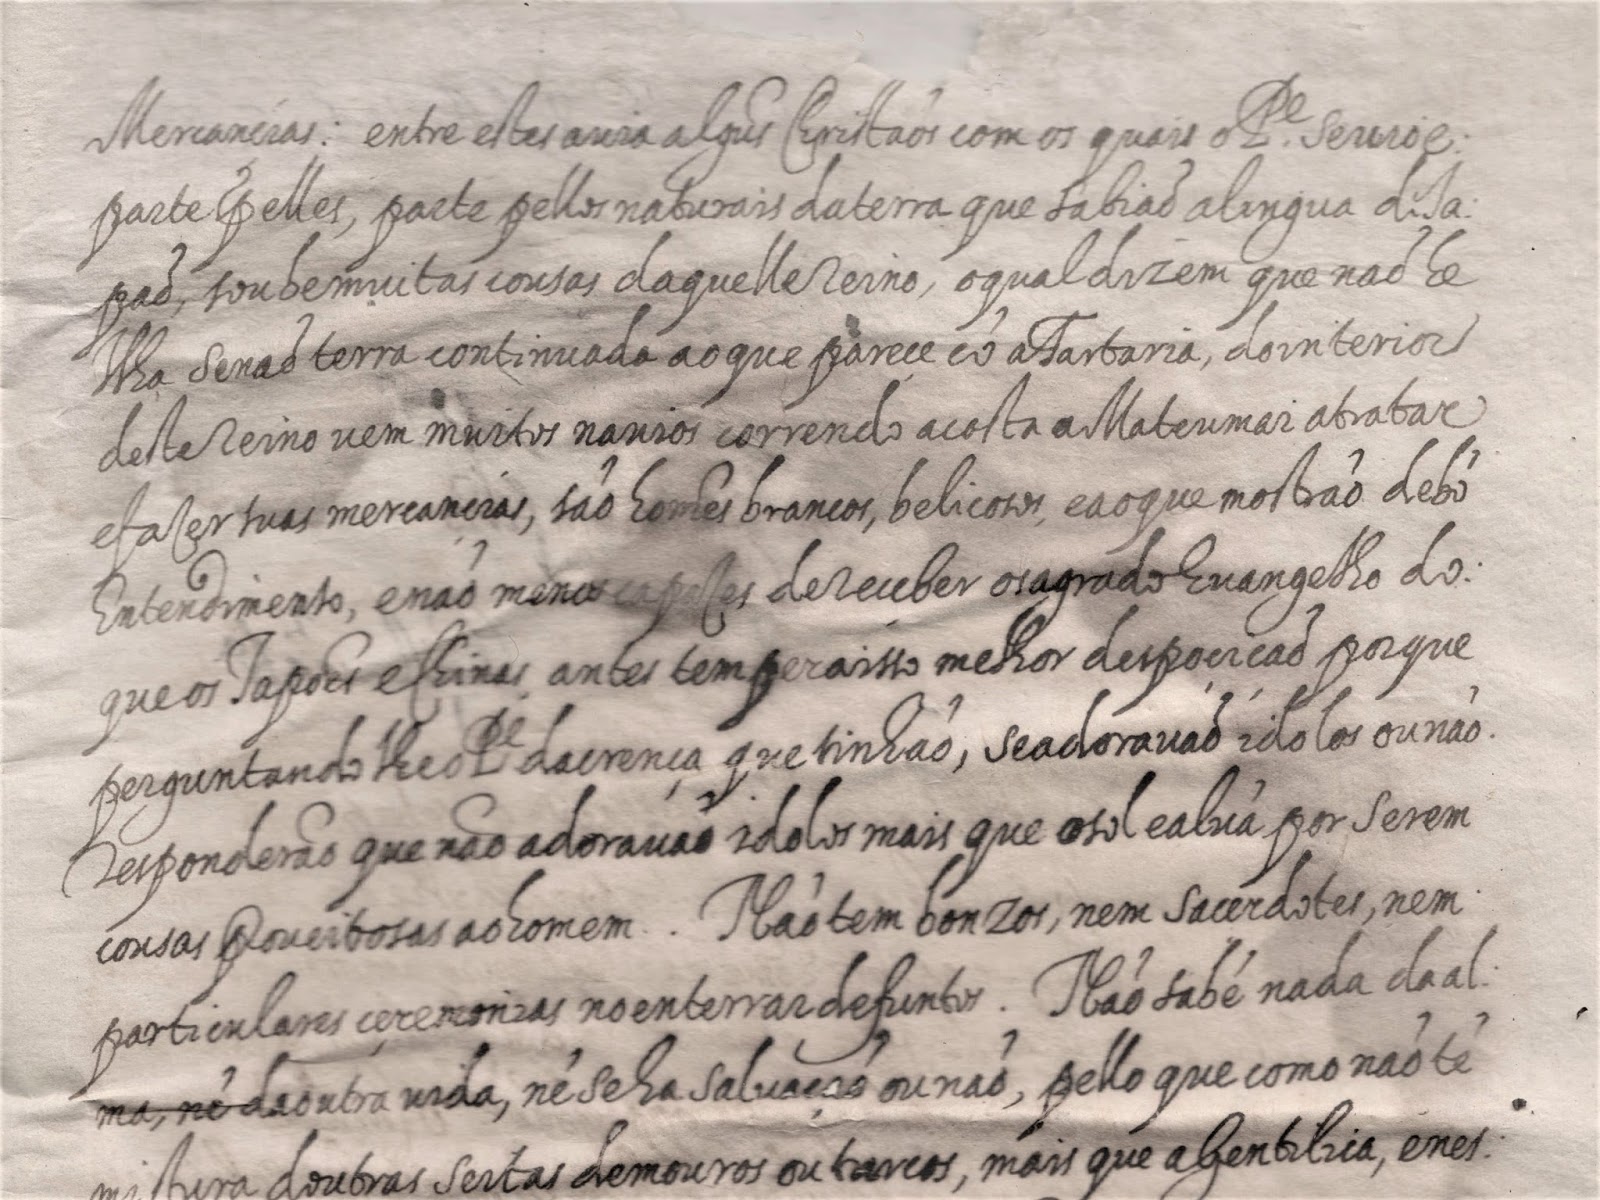 Mercancias: entre estes auia algũs Christaõs com os quais o Pe. seruio e:
parte p elles, parte pellos naturais da terra que sabiaõ a lingua de Ja:
paõ, soube muitas cousas daquelle reino, o qual dizem que naõ he
Ilha senaõ terra continuada ao que parece cõ a Tartaria, do interior
deste reino uem muitos nauios correndo a costa a Matsumai a tratar
e fazer suas mercancias, saõ homẽs brancos, belicosos, e ao que mostraõ de bõ
Entendimento, e naõ menos capazes de receber o sagrado Euangelho do:
que os Japoẽs e Chinas, antes tem pera isso melhor despociçaõ porque
perguntando lhe o Pe da crença que tinhaõ, se adorauaõ idolos ou naõ.
responderaõ que naõ adorauaõ idolos mais que o sol e a lũa por serem
cousas proueitosas ao homem. Naõ tem bonzos, nem sacerdotes, nem
particulares çeremonias no enterrar defuntos. Naõ sabẽ nada da al:
ma, nẽ da outra uida, nẽ se ha saluaçaõ ou naõ, pello que como naõ tẽ
mistura doutras seitas de mouros ou turcos, mais que a Gentilica, e nes: